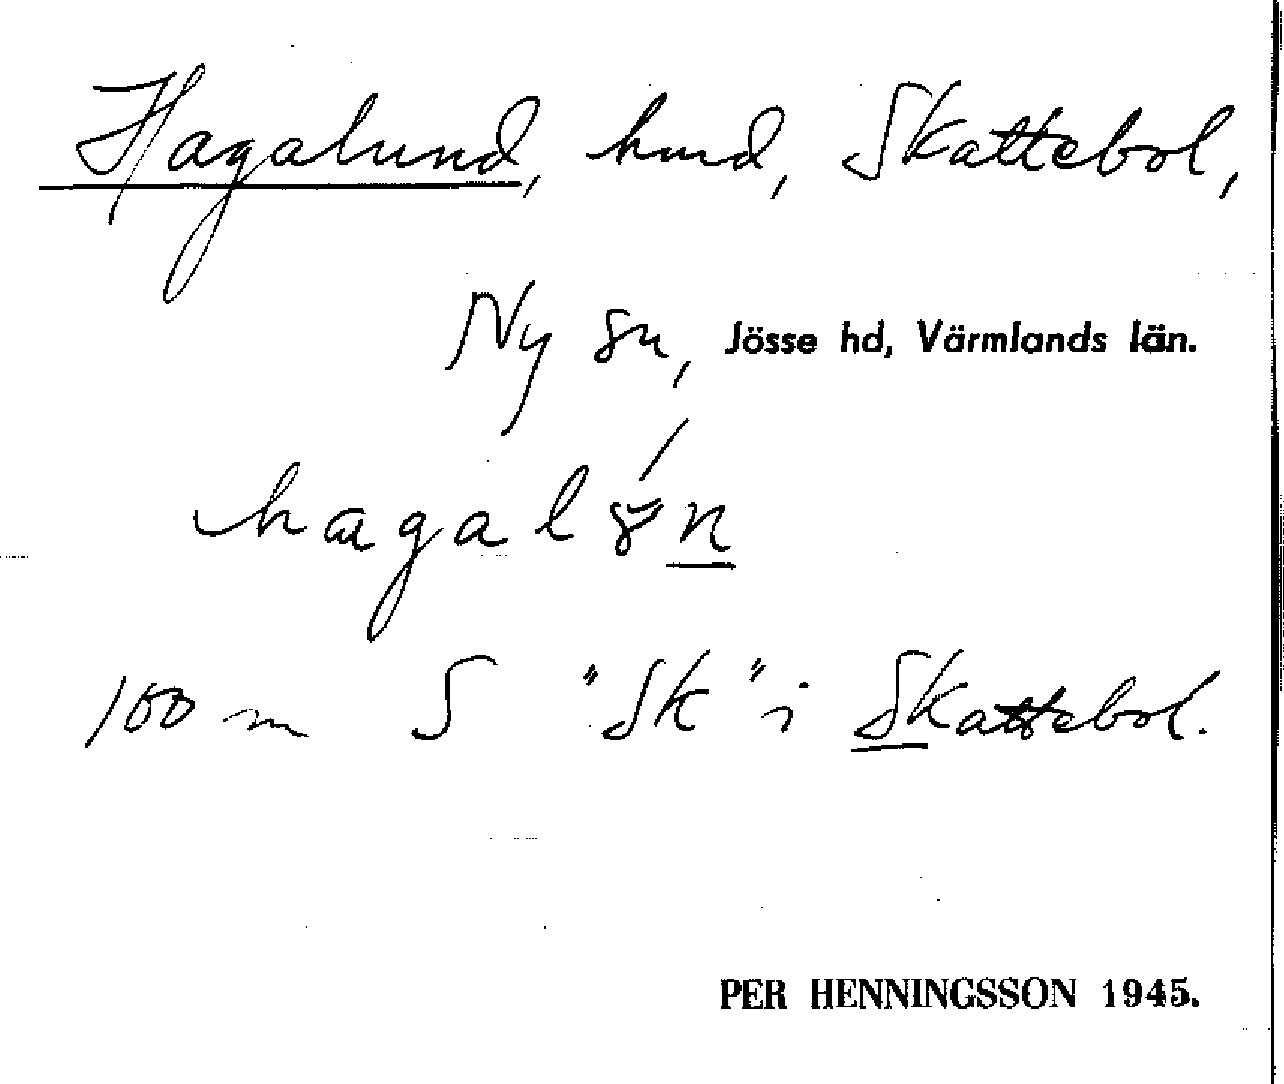 Hagalund, hmd, Skattebol,
Ny sn, Jösse hd, Värmlands län.
100 m S "Sk" i Skattebol.
PER HENNINGSSON 1945.